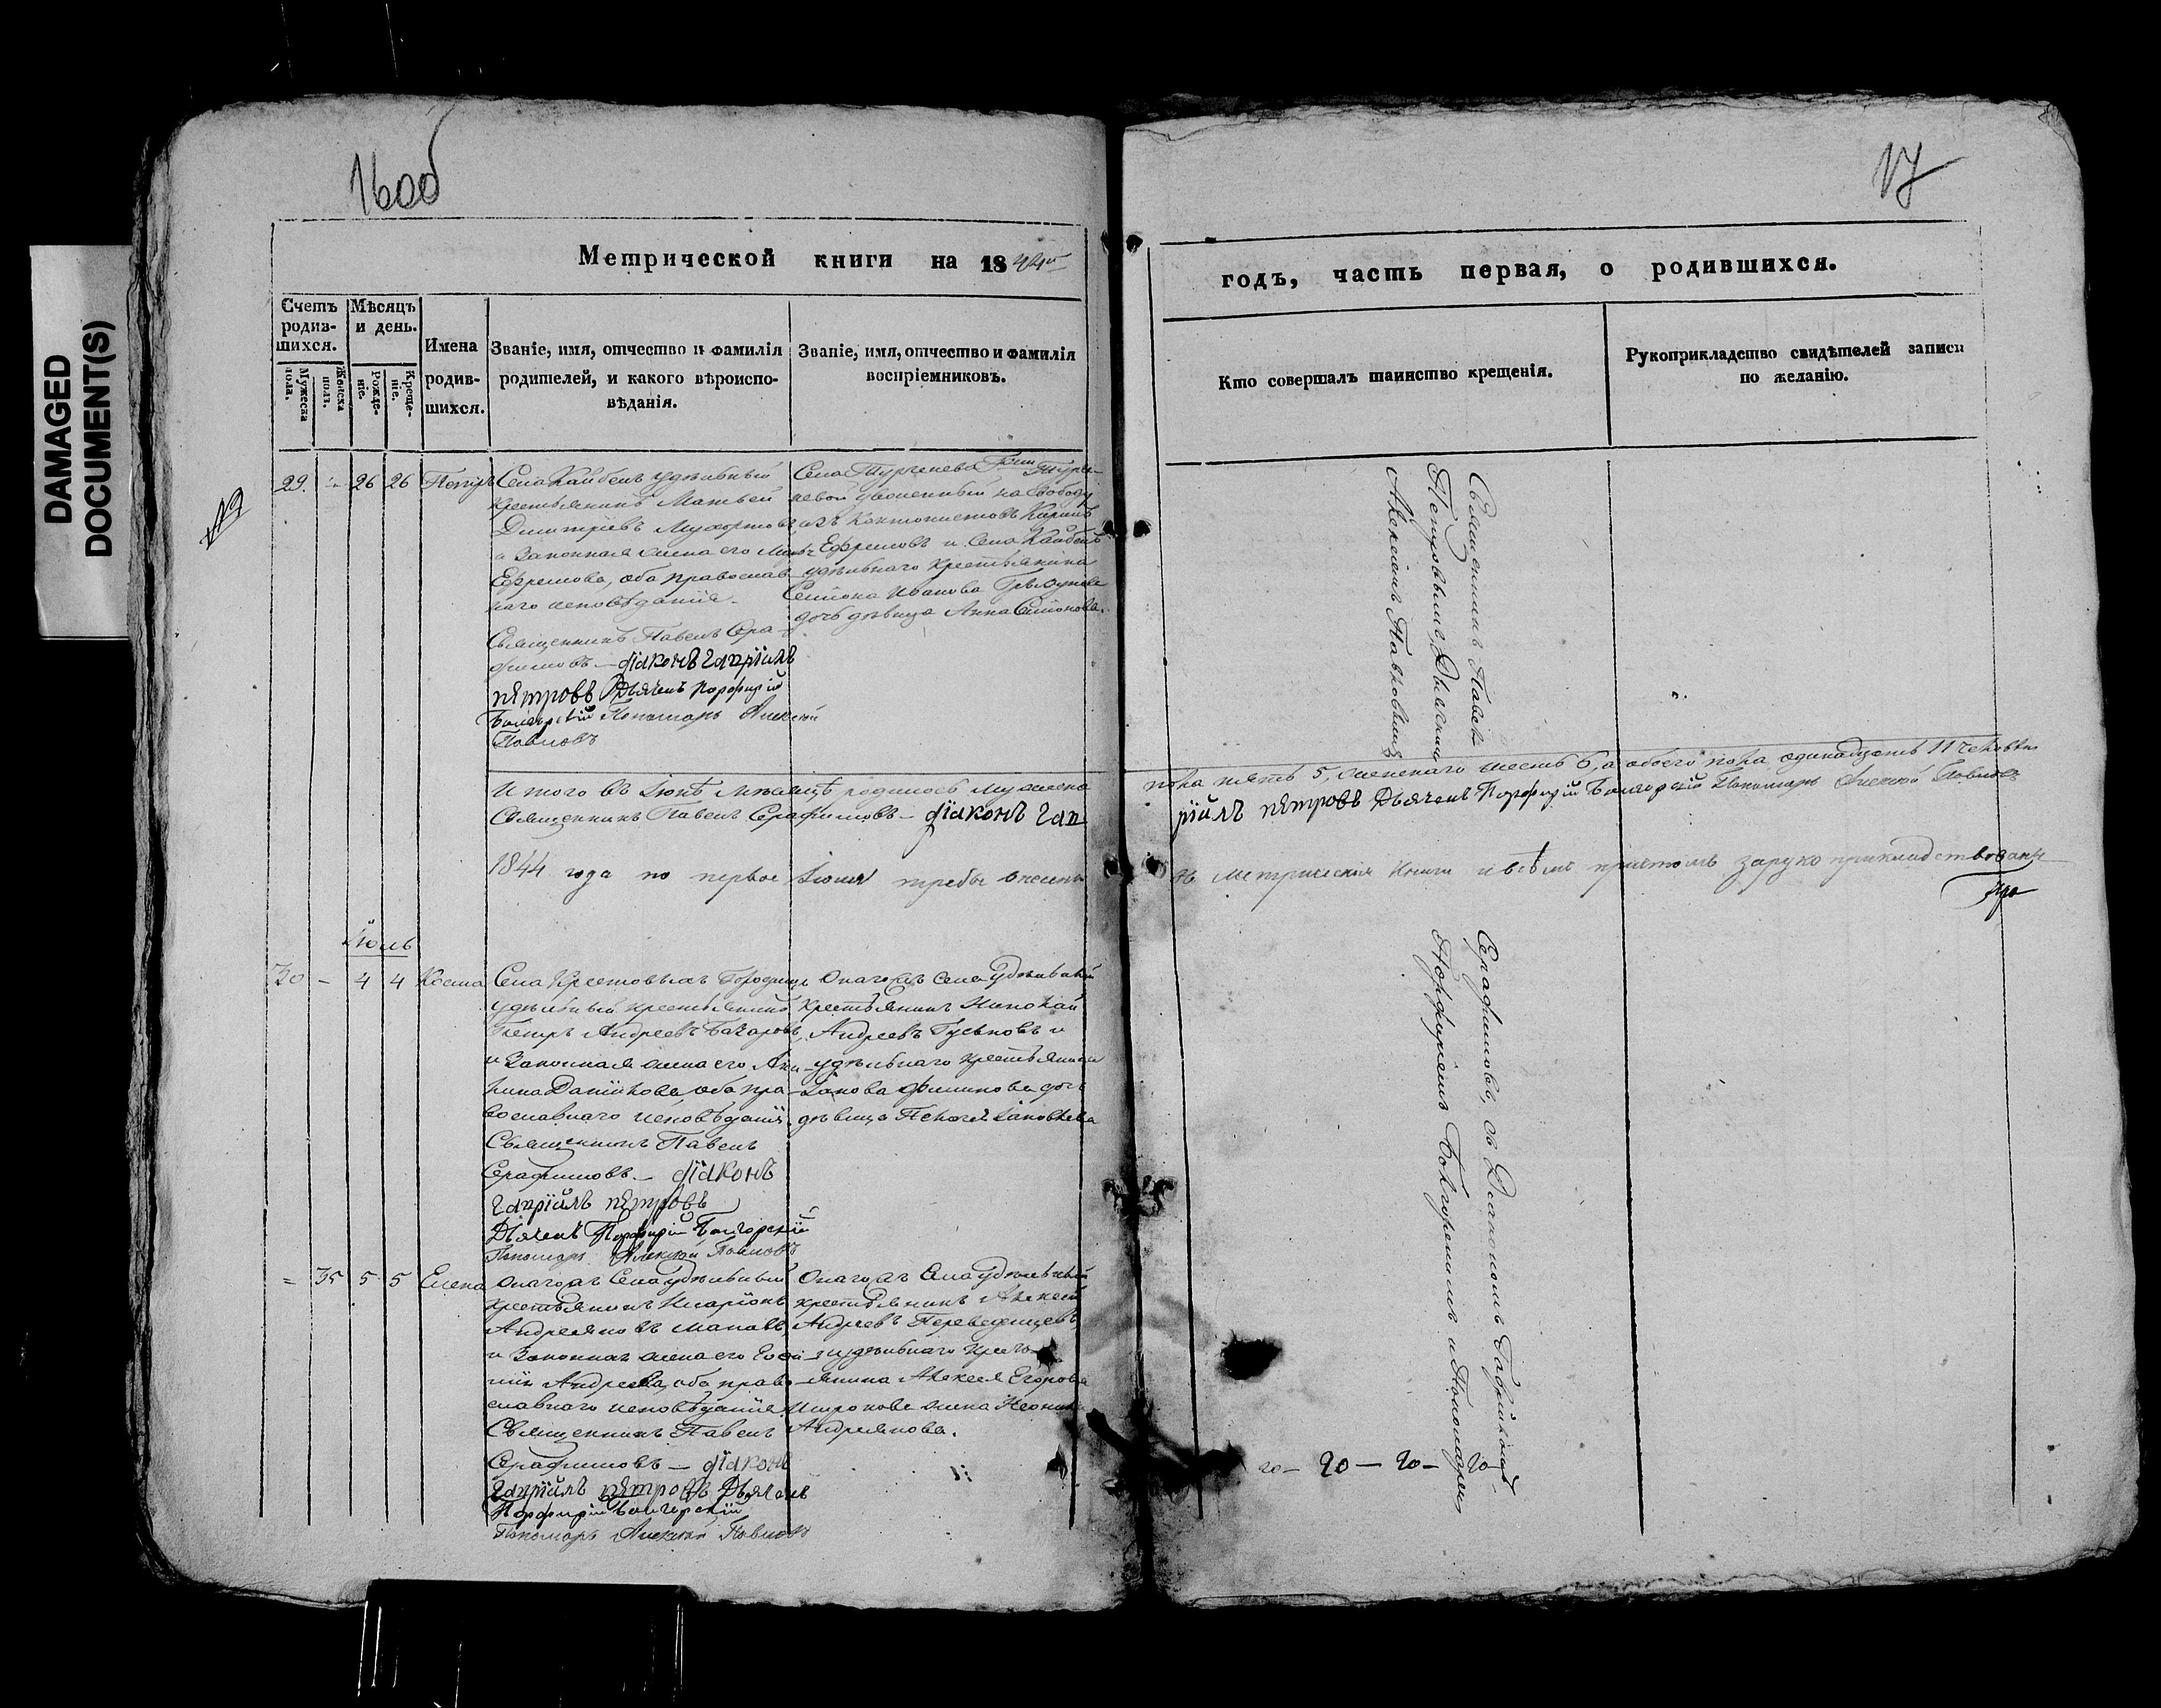 DAMAGED
DOCUMENT(S)
16об
17
Метрической книги на 1844й
годъ, часть первая, о родившихся.
Счетъ родив-шихся.
Мѣсяцъ и день.
Мужеска пола.
Женска пола.
Рожде-ніе.
Креще-ніе.
Имена
родив-
шихся.
Званіе, имя, отчество и фамилія
родителей, и какого вѣроиспо-
вѣданія.
Званіе, имя, отчество и фамилія
воспріемниковъ.
Кто совершалъ таинство крещенія.
Рукоприкладство свидѣтелей записи
по желанію.
29. 26 26 Петръ
Села Кайбелъ удѣльный
крестьянинъ Матвей
Дмитріевъ
и законная жена его
Ефремова, оба православ-
наго исповѣданія.
Священникъ Павелъ Сера-
фимовъ — діаконъ Гапріилъ
пѣтровъ Дьячекъ Порфирій
Болгарскій Пономарь Алексей
Павловъ
Села Тургенева Гжи Турге-
невой уволенный на свободу
изъ Кантонистовъ
Ефремовъ и Села Кайбелъ
удѣльнаго крестьянина
Семіона Иванова
дочь дѣвица Анна Семіонова.
Священникъ Павелъ
Петровымъ, Дьячкомъ
Алексіемъ Павловымъ
Итого въ Іюнѣ мѣсяцѣ родилось мужеска
пола пять 5, женскаго шесть 6, а обоего пола одинадцать 11 человѣкъ
Священникъ Павелъ Серафимовъ — діаконъ Гап
ріилъ пѣтровъ Дьячекъ Порфирій Болгарскій Пономарь Алексей Павловъ
1844 года по первое Іюля требы внесены
въ метрическія книги и всѣмъ причтомъ зарукоприкладствованы
Іюль
30 – 4 4 Косма
Села Крестовыхъ Городищъ
удѣльный крестьянинъ
Петръ Андреевъ
и законная жена его Аки-
лина Даніилова, оба пра-
вославнаго исповѣданія.
Священникъ Павелъ
Серафимовъ. — діаконъ
Гапріилъ пѣтровъ
Дьячекъ Порфирій Болгарскій
Пономарь Алексей Павловъ
Онагожъ Села Удѣльный
крестьянинъ Николай
Андреевъ Гуськовъ и
удѣльнаго крестьянина
Іакова Филипова дочь
дѣвица Пелагея Іаковлева
Серафимовъ, съ Діакономъ Гавріиломъ
Порфиріемъ Болгарскимъ и Пономаремъ
= 35 5 5 Елена
Онагожъ Села удѣльный
крестьянинъ Иларіонъ
Андреяновъ
и законная жена его
Андреева, оба право-
славнаго исповѣданія.
Священникъ Павелъ
Серафимовъ — діаконъ
Гапріилъ пѣтровъ Дьячекъ
Порфирій Болгарскій
Пономарь Алексей Павловъ
Онагожъ Села Удѣльный
крестьянинъ Алексей
Андреевъ Переведенцевъ,
и удѣльнаго кресть-
янина Алексея Егорова
жена
Андреянова.
20 — 20 — 20 — 20